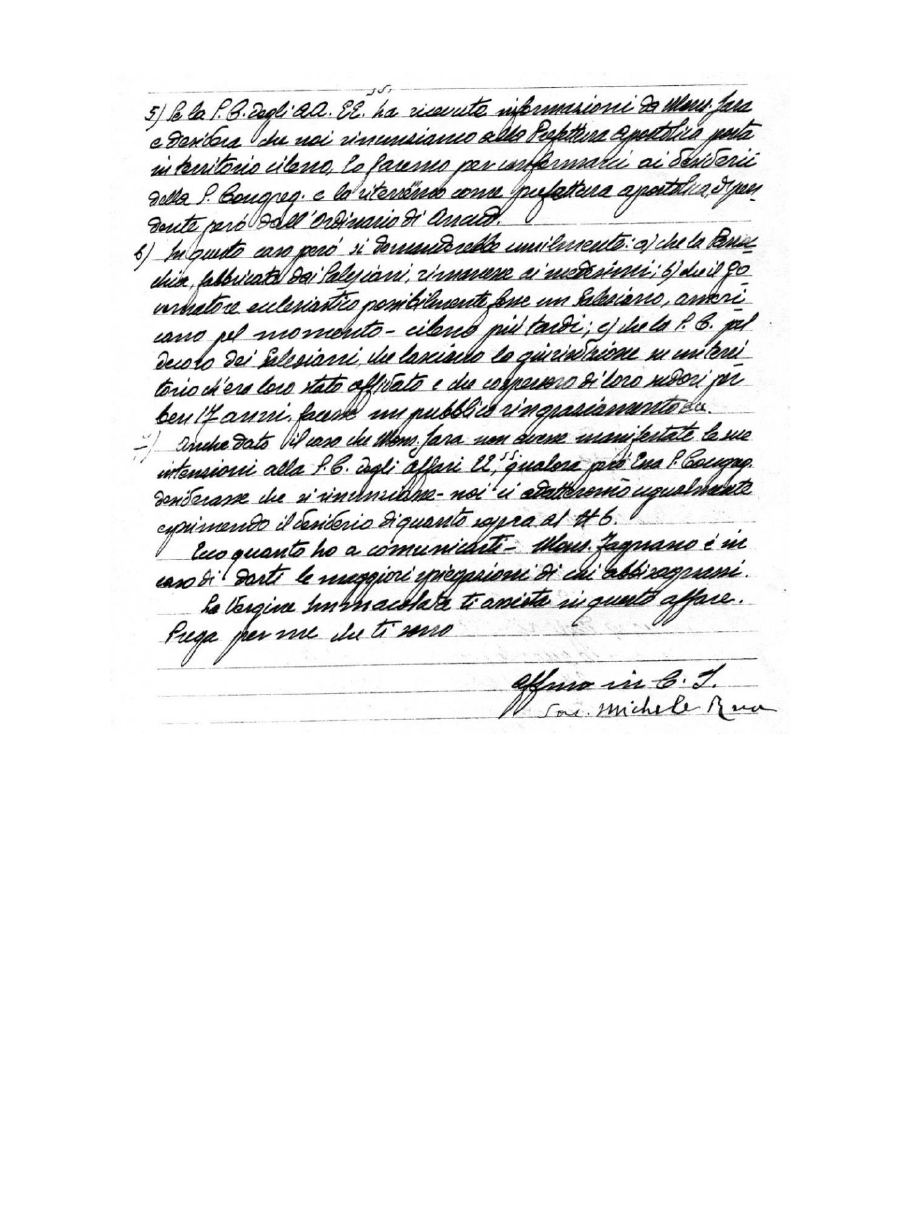 ss.
5) Se la S. C. degli AA. EE. ha ricevute informazioni da Mons. Jara
e desidera che noi rinunziamo alla Prefettura Apostolica posta
in territorio cileno, lo faremo per conformarci ai desiderii
della S. Congreg. e la riterremo come prefettura apostolica, dipen-
dente però dall'Ordinario di Ancud.
6) In questo caso però si domanderebbe umilmente: a) che la Parroc-
chia, fabbricata dai Salesiani, rimanesse ai medesimi; b) che il Go-
vernatore ecclesiastico possibilmente fosse un Salesiano, ameri-
cano pel momento - cileno più tardi; c) che la S. C. pel
decoro dei Salesiani, che lasciano la giurisdizione su un terri-
torio ch'era loro stato affidato e che cospersero di loro sudori per
ben 17 anni, facesse un pubblico ringraziamento
7) Anche dato il caso che Mons. Jara non avesse manifestate le sue
intenzioni alla S. C. degli Affari EE.ss, qualora però Essa S. Congreg.
desiderasse che si rinunziasse - noi ci adatteremo ugualmente
esprimendo il desiderio di quanto sopra al N 6.
Ecco quanto ho a comunicarti - Mons. Fagnano è in
caso di darti le maggiori spiegazioni di cui abbisognassi.
La Vergine Immacolata ti assista in questo affare.
Prega per me che ti sono
Affmo in C. J.
Sac. Michele Rua